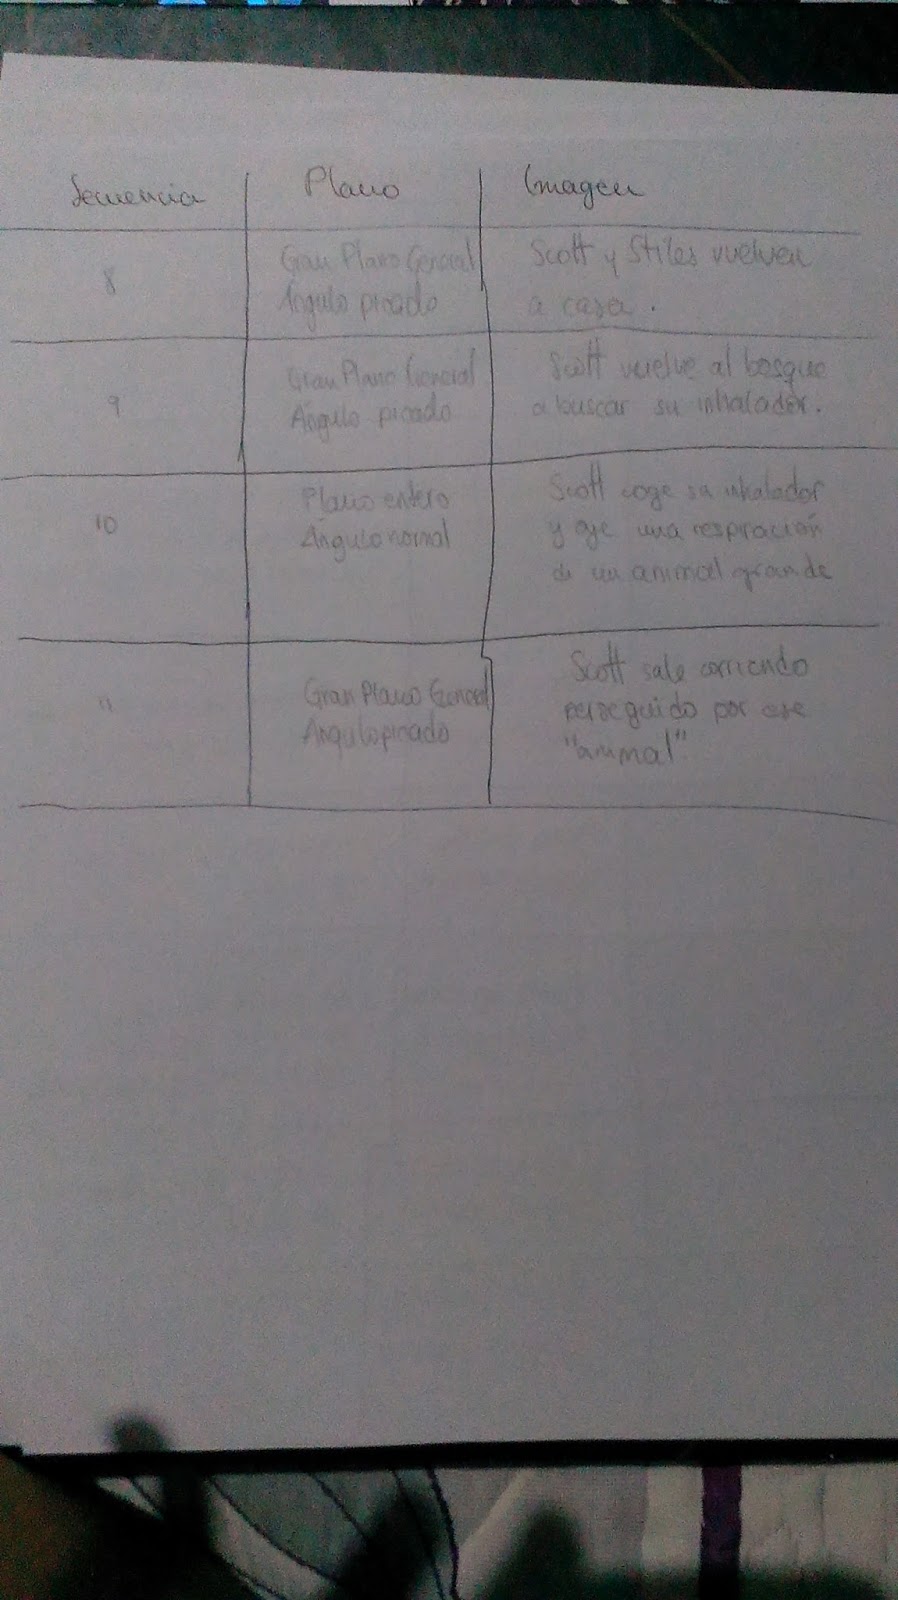 Secuencia Plano Imagen
8
Gran Plano General
Ángulo picado
Scott y Stiles vuelven
a casa.
9
Gran Plano General
Ángulo picado
Scott vuelve al bosque
a buscar su inhalador.
10
Plano entero
Ángulo normal
Scott coge su inhalador
y oye una respiración
de un animal grande
11
Gran Plano General
Angulo picado
Scott sale corriendo
perseguido por ese
"animal"